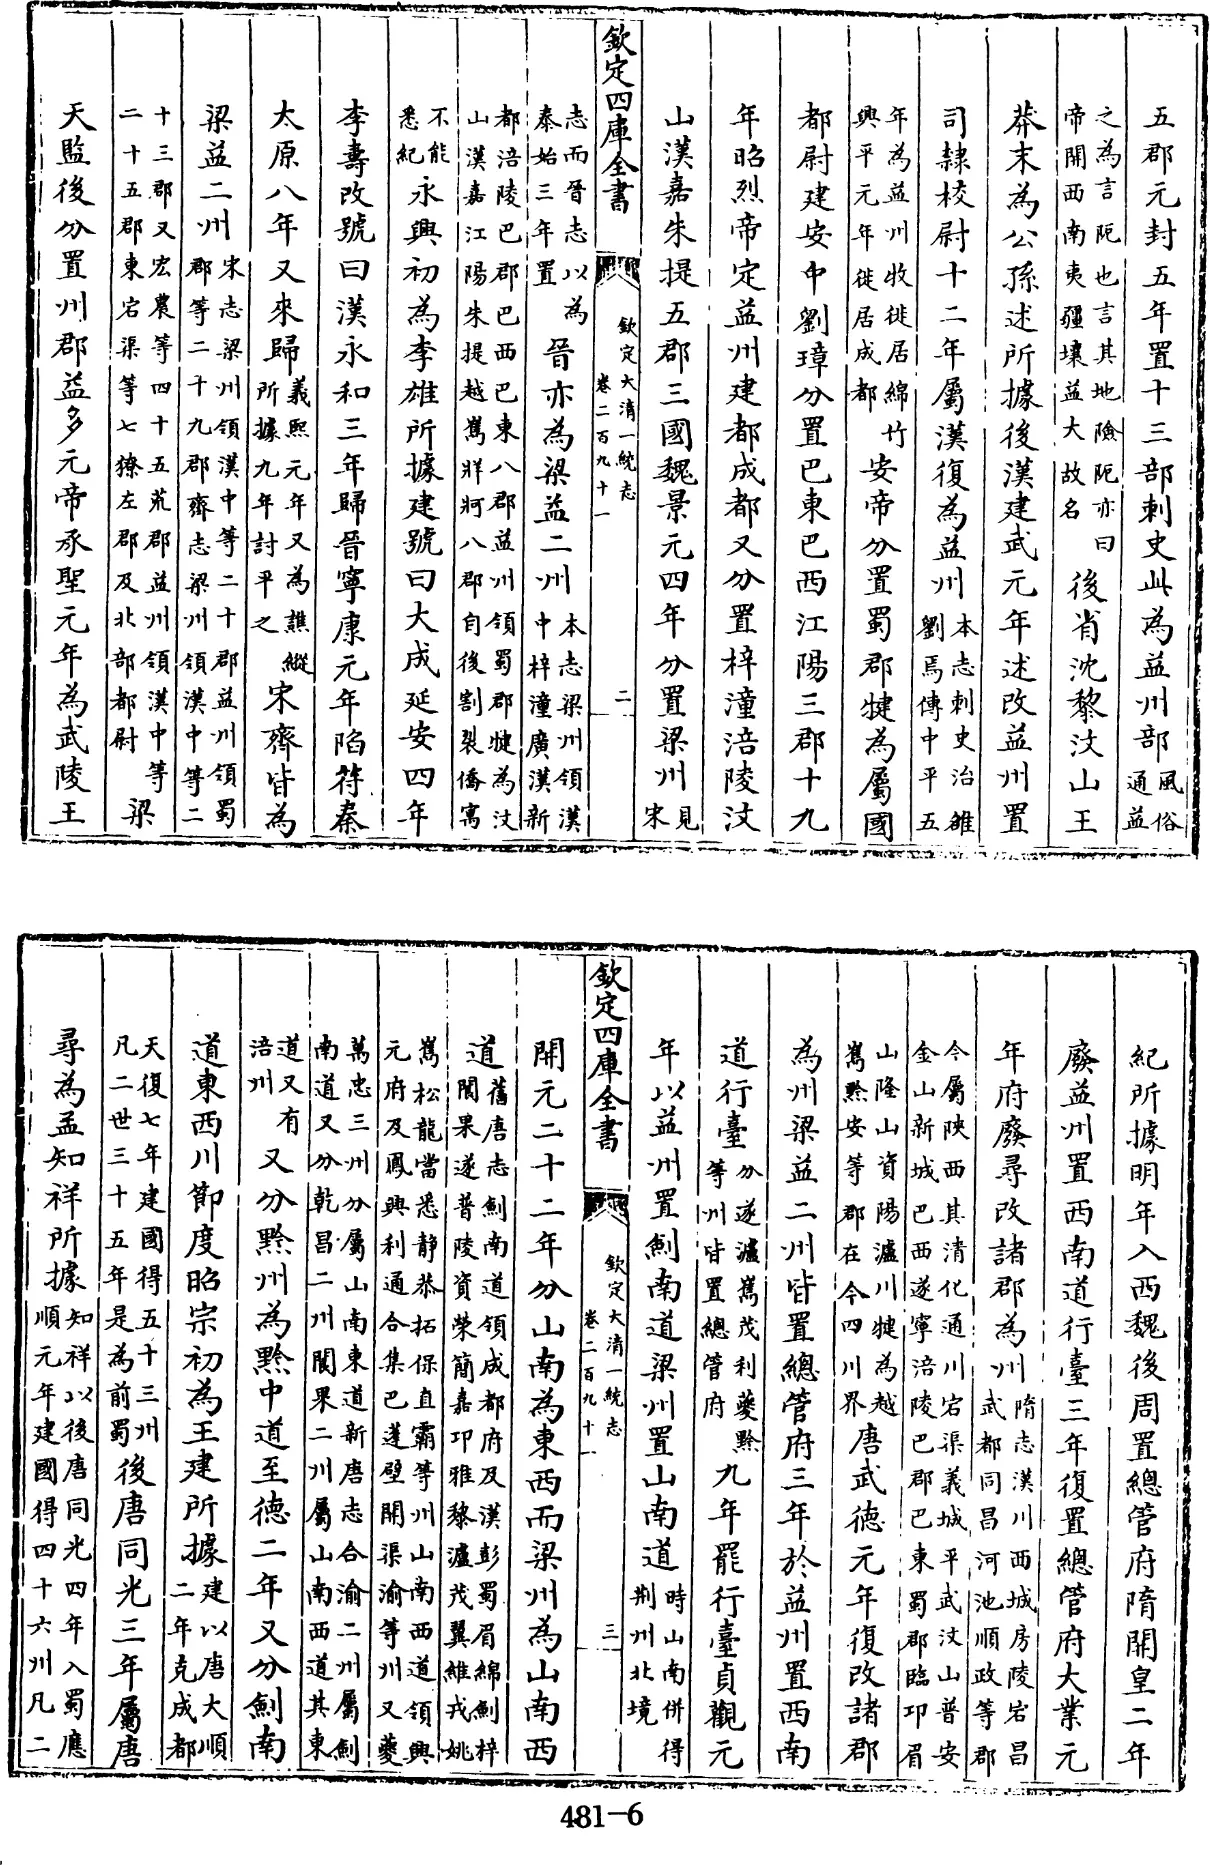 五郡元封五年置十三部刺史此為益州部風俗
通益
之為言阨也言其地險阨亦曰
帝開西南夷疆壤益大故名
後省沈黎汶山王
莽末為公孫述所據後漢建武元年述改益州置
司隸校尉十二年屬漢復為益州本志刺史治雒
劉焉傳中平五
年為益州牧徙居綿竹
興平元年徙居成都
安帝分置蜀郡犍為屬國
都尉建安中劉璋分置巴東巴西江陽三郡十九
年昭烈帝定益州建都成都又分置梓潼涪陵汶
山漢嘉朱提五郡三國魏景元四年分置梁州見
宋
欽定四庫全書
欽定大清一統志
卷二百九十一
二
志而晉志以為
泰始三年置
晉亦為梁益二州本志梁州領漢
中梓潼廣漢新
都涪陵巴郡巴西巴東八郡益州領蜀郡犍為汶
山漢嘉江陽朱提越嶲牂牁八郡自後割裂僑寓
不能
悉紀
永興初為李雄所據建號曰大成延安四年
李壽改號曰漢永和三年歸晉寧康元年陷苻秦
太原八年又來歸義熙元年又為譙縱
所據九年討平之
宋齊皆為
梁益二州宋志梁州領漢中等二十郡益州領蜀
郡等二十九郡齊志梁州領漢中等二
十三郡又宏農等四十五荒郡益州領漢中等
二十五郡東宕渠等七獠左郡及北部都尉
梁
天監後分置州郡益多元帝承聖元年為武陵王
紀所據明年入西魏後周置總管府隋開皇二年
廢益州置西南道行臺三年復置總管府大業元
年府廢尋改諸郡為州隋志漢川西城房陵宕昌
武都同昌河池順政等郡
今屬陝西其清化通川宕渠義城平武汶山普安
金山新城巴西遂寧涪陵巴郡巴東蜀郡臨邛眉
山隆山資陽瀘川犍為越
嶲黔安等郡在今四川界
唐武德元年復改諸郡
為州梁益二州皆置總管府三年於益州置西南
道行臺分遂瀘嶲茂利夔黔
等州皆置總管府
九年罷行臺貞觀元
年以益州置劍南道梁州置山南道時山南併得
荆州北境
欽定四庫全書
欽定大清一統志
卷二百九十一
三
開元二十二年分山南為東西而梁州為山南西
道舊唐志劍南道領成都府及漢彭蜀眉綿劍梓
閬果遂普陵資榮簡嘉邛雅黎瀘茂翼維戎姚
嶲松龍當悉靜恭柘保直霸等州山南西道領興
元府及鳳興利通合集巴蓬壁開渠渝等州又夔
萬忠三州分屬山南東道新唐志合渝二州屬劍
南道又分乾昌二州閬果二州屬山南西道其東
道又有
涪州
又分黔州為黔中道至德二年又分劍南
道東西川節度昭宗初為王建所據建以唐大順
二年克成都
天復七年建國得五十三州
凡二世三十五年是為前蜀
後唐同光三年屬唐
尋為孟知祥所據知祥以後唐同光四年入蜀應
順元年建國得四十六州凡二
481-6